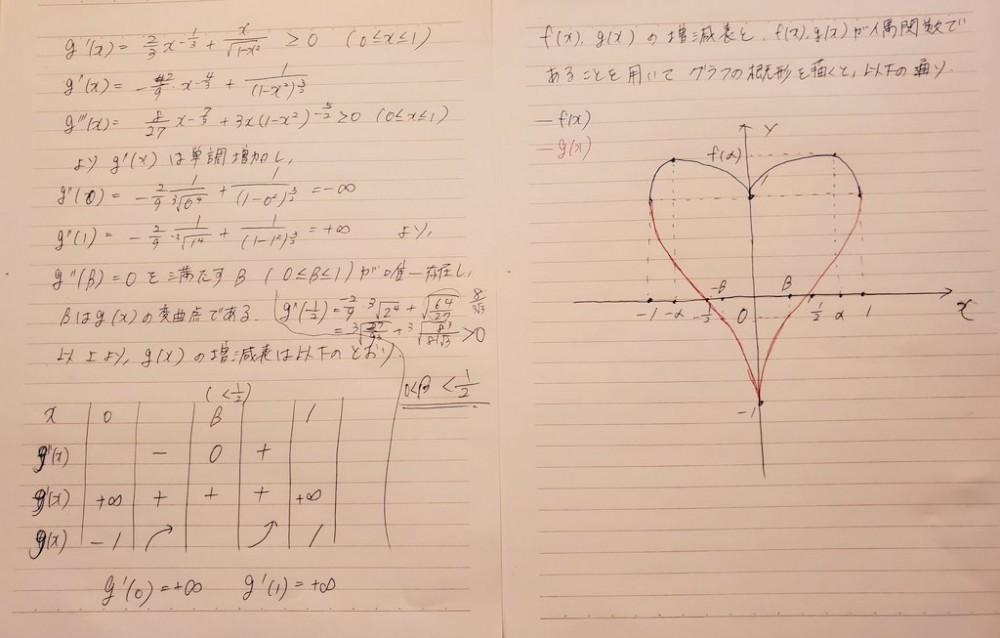 g'(x) = 2/3 x^{-1/3} + x/√(1-x²) ≥ 0 (0≤x≤1)
g'(x) = -2/9 · x^{-4/3} + 1/(1-x²)^{3/2}
g'''(x) = 8/27 x^{-7/3} + 3x(1-x²)^{-5/2} ≥ 0 (0≤x≤1)
より g''(x) は単調増加し,
g''(0) = -2/9 1/∛0⁴ + 1/(1-0²)^{3/2} = -∞
g''(1) = -2/9 · 1/∛1⁴ + 1/(1-1²)^{3/2} = +∞ より,
g''(β) = 0 を満たす β (0≤β≤1) が唯一存在し,
βは g(x) の変曲点である.
g''(1/2) = -2/9 ∛2⁴ + √(64/27) 8/3√3
> 0
以上より, g(x) の増減表は以下のとおり
0<β<1/2
(<1/2)
x 0 β 1
g''(x) - 0 +
g'(x) +∞ + + + +∞
g(x) -1 ↗ ↗ 1
g'(0) = +∞ g'(1) = +∞
f(x), g(x) の増減表と f(x), g(x) が偶関数で
あることを用いて グラフの概形を描くと, 以下の通り.
— f(x)
— g(x)
y
f(α)
1
-1 -α -1/2 -β 0 β 1/2 α 1 x
-1